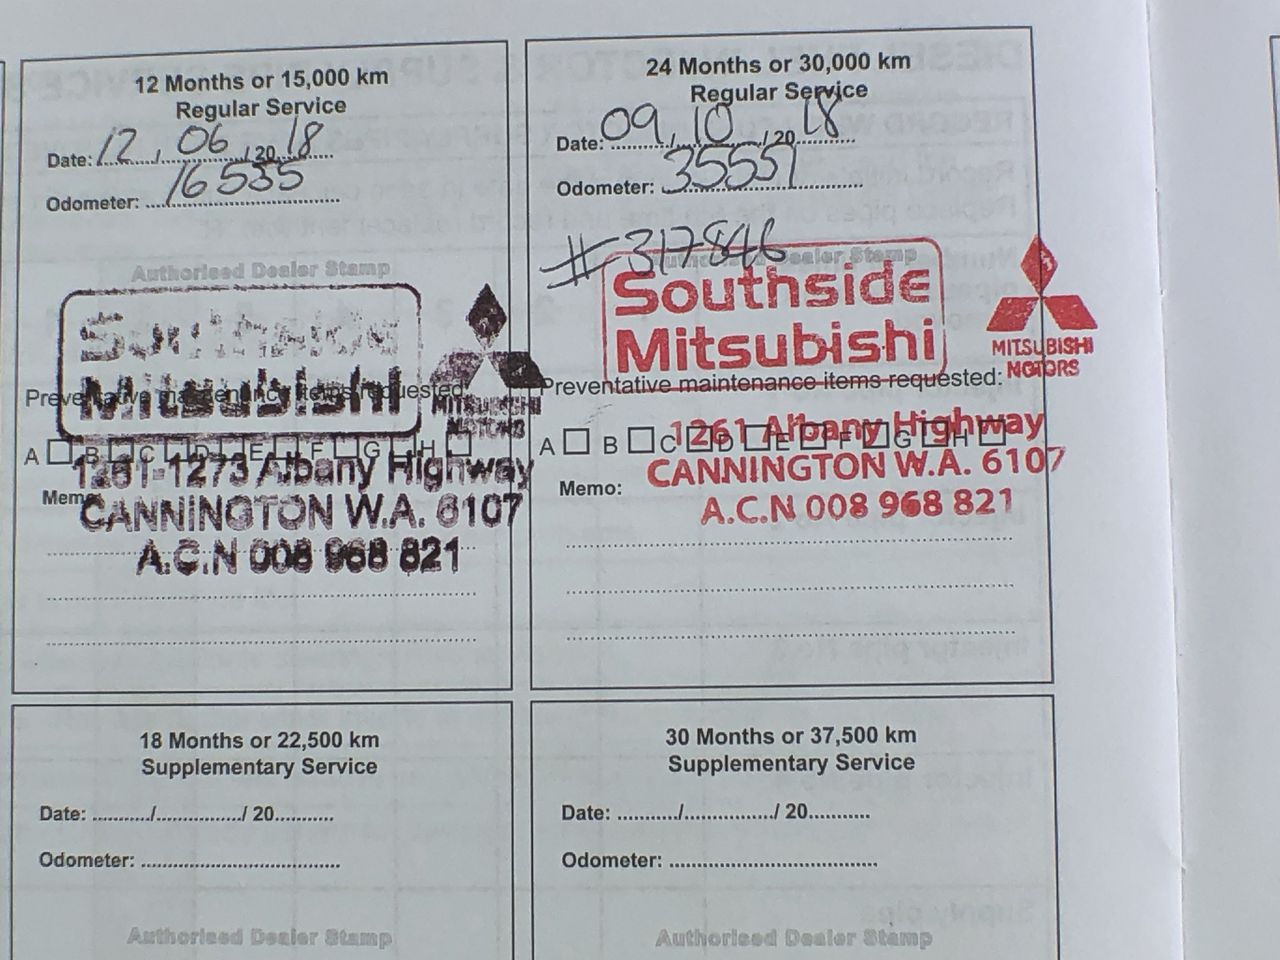 12 Months or 15,000 km
Regular Service
Date: 12 / 06 / 20 18
Odometer: 16535
Authorised Dealer Stamp
Southside
Mitsubishi
MITSUBISHI
MOTORS
Preventative maintenance items requested:
A B C D E F G H
1261-1273 Albany Highway
Memo:
CANNINGTON W.A. 6107
A.C.N 008 968 821
24 Months or 30,000 km
Regular Service
Date: 09 / 10 / 20 18
Odometer: 35551
#317846
Authorised Dealer Stamp
Southside
Mitsubishi
MITSUBISHI
MOTORS
Preventative maintenance items requested:
A B C D E F G H
1261 Albany Highway
CANNINGTON W.A. 6107
Memo:
A.C.N 008 968 821
18 Months or 22,500 km
Supplementary Service
Date: ........../.............../ 20..........
Odometer: ...................................
Authorised Dealer Stamp
30 Months or 37,500 km
Supplementary Service
Date: ........../.............../ 20..........
Odometer: ...................................
Authorised Dealer Stamp